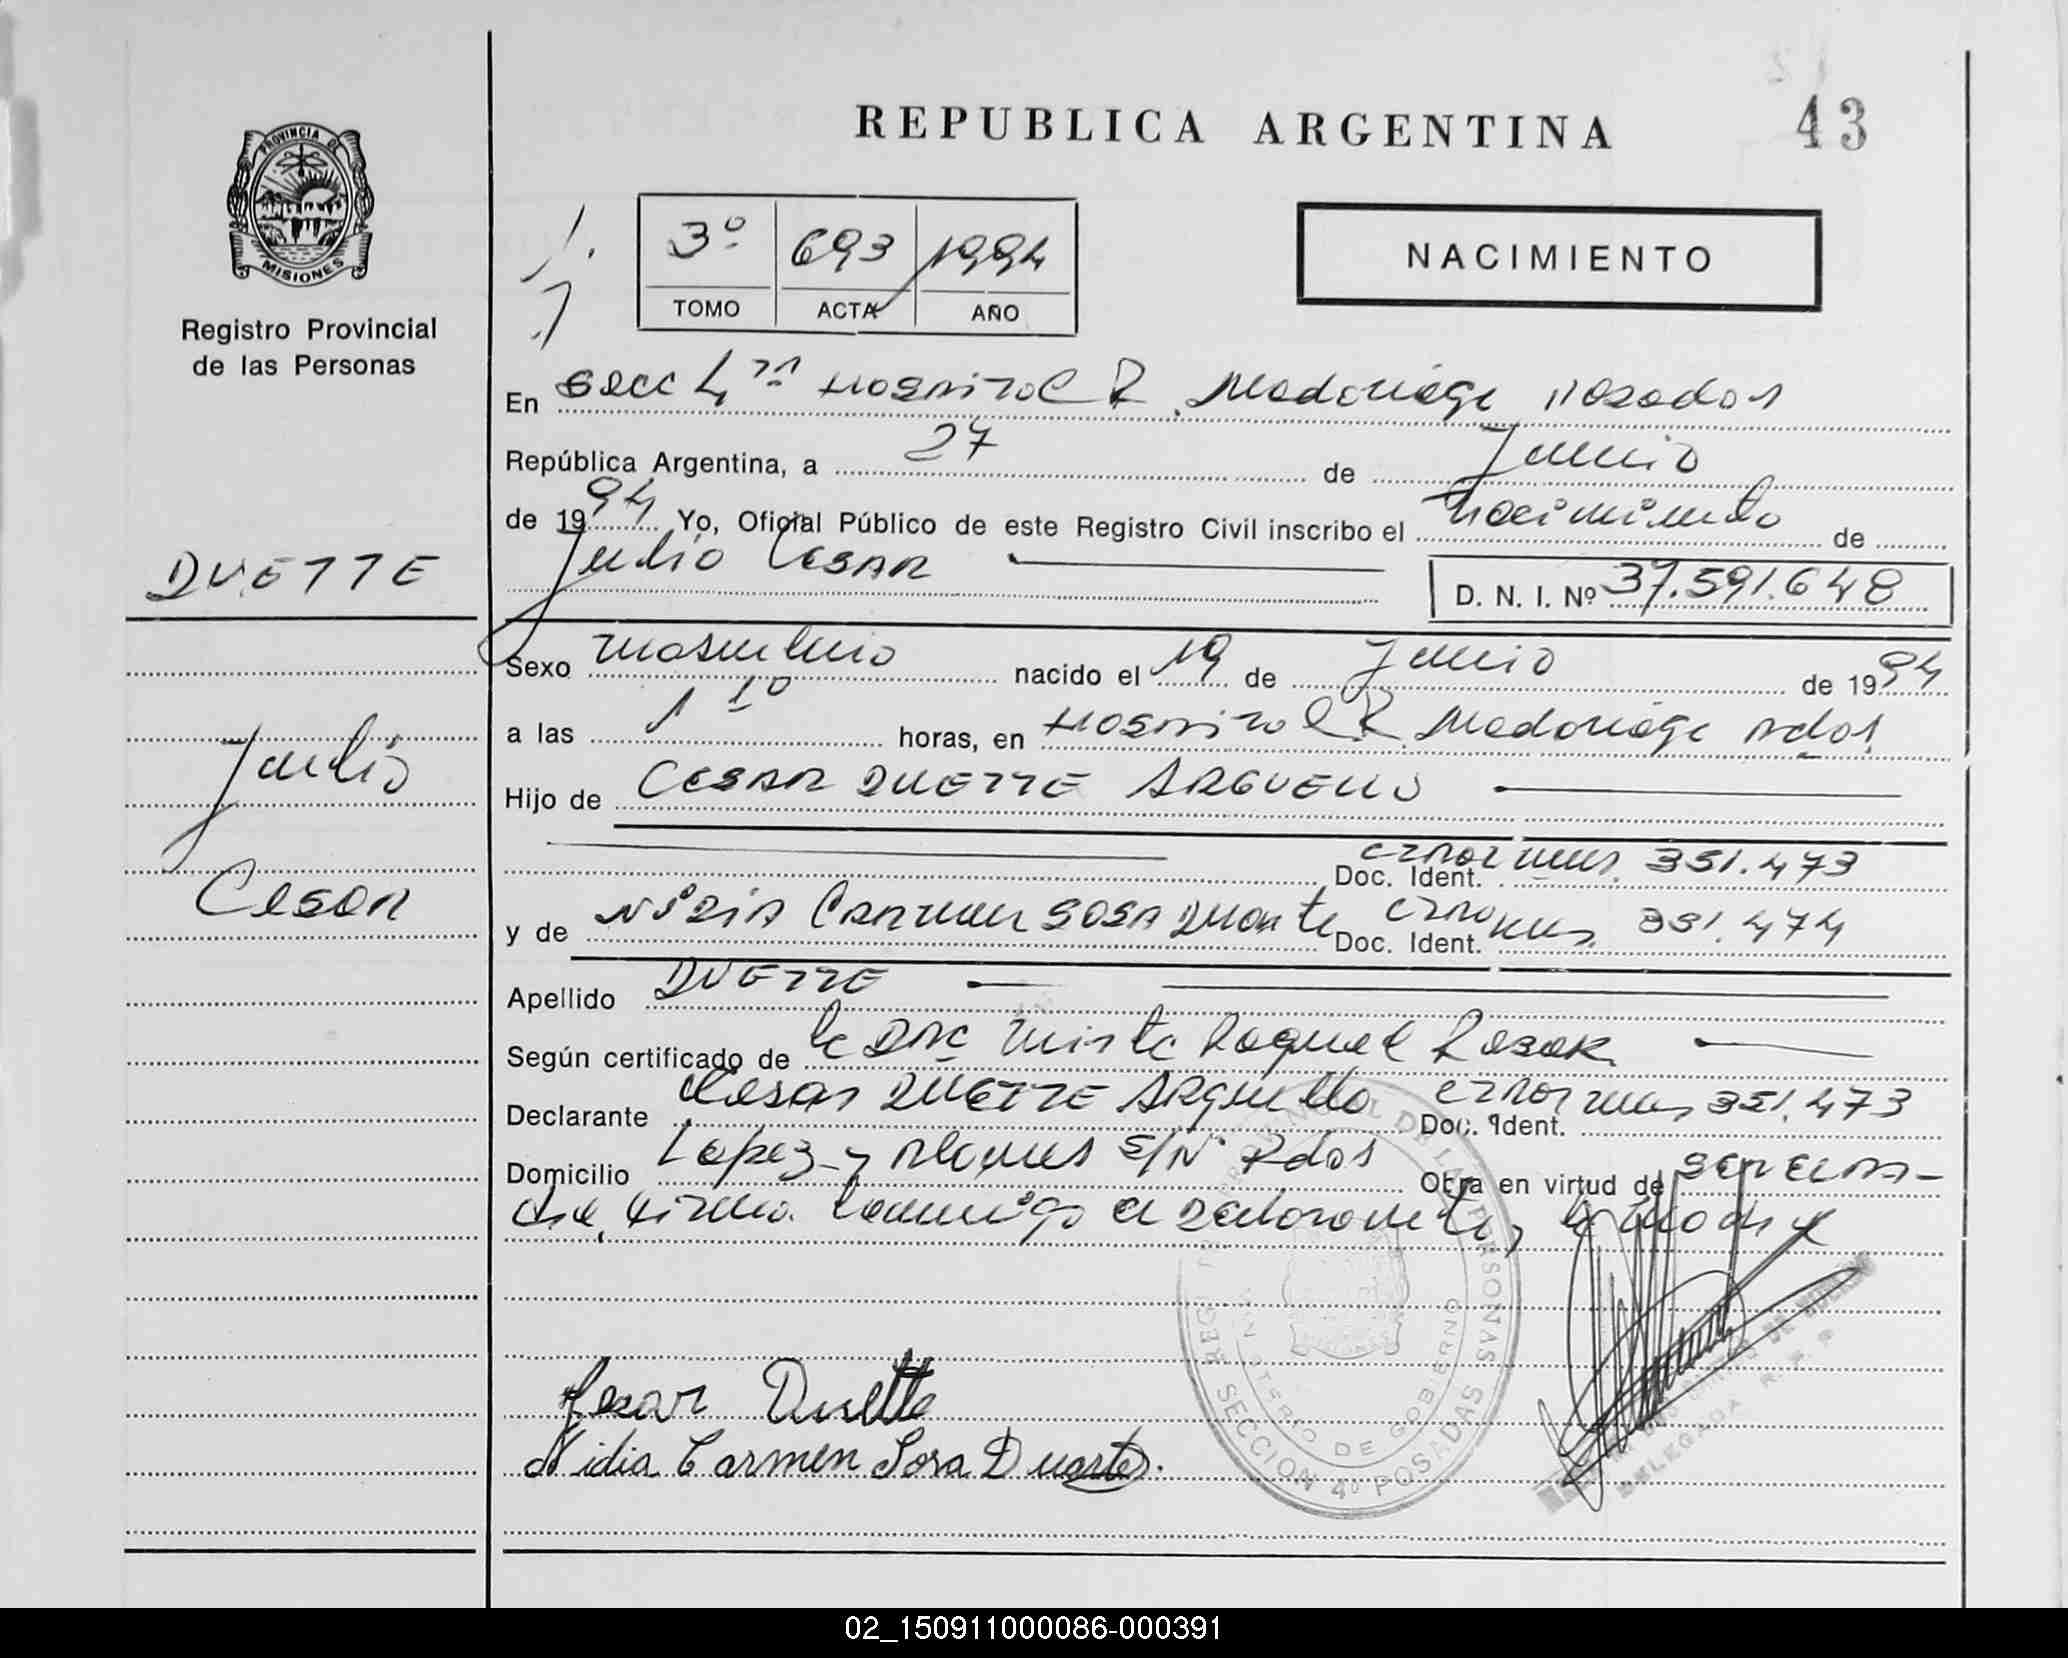 REPUBLICA ARGENTINA 43
PROVINCIA DE
MISIONES
Registro Provincial
de las Personas
3º 693 1994
TOMO ACTA AÑO
NACIMIENTO
En Secc 4ta Hospital R. Madariaga Posadas
República Argentina, a 27 de Junio
de 1994 Yo, Oficial Público de este Registro Civil inscribo el nacimiento de
Julio Cesar D. N. I. Nº 37.591.648
DUETTE
Julio
Cesar
Sexo masculino nacido el 19 de Junio de 1994
a las 1 10 horas, en Hospital R. Madariaga Pdas
Hijo de Cesar DUETTE ARGUELLO
Doc. Ident. 351.473
y de Nidia Carmen SOSA Duarte Doc. Ident. 351.474
Apellido DUETTE
Según certificado de la Dra Mirta Raquel
Declarante Cesar DUETTE Arguello Doc. Ident. 351.473
Domicilio Lopez y Planes S/Nº Pdas Obra en virtud de
firma conmigo el declarante, la madre
Cesar Duette
Nidia Carmen Sosa Duarte.
REGISTRO PROVINCIAL DE LAS PERSONAS
MINISTERIO DE GOBIERNO
SECCION 4º POSADAS
DELEGADA R. P. P.
02_150911000086-000391